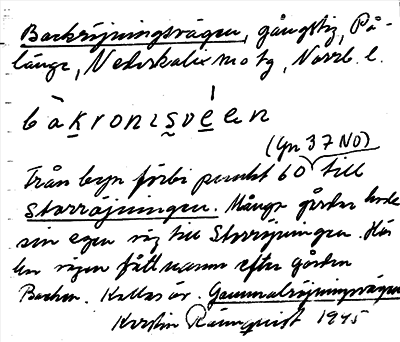 Backröjningsvägen, gångstig, På-
länge, Nederkalix motg, Norrb. l.
bàkronısve̱en
(Yn 37 NO)
Från byn förbi punkt 60 till
Storröjningen. Många gårdar hade
sin egen väg till Storröjningen. Här
har vägen fått namn efter gården
Backen. Kallas äv. Gammalröjningsvägen
Kerstin Rännquist 1945